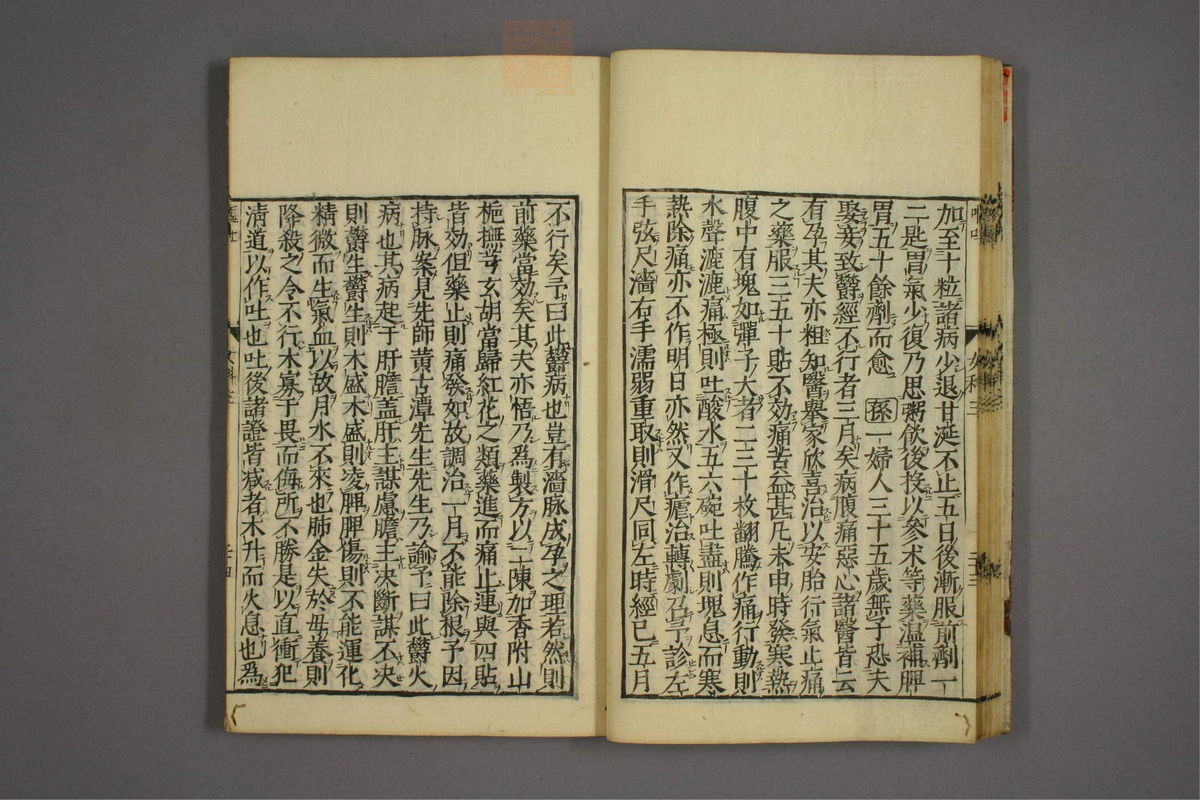 加至十粒諸病少退甘涎不止五日後漸服前劑一
二匙胃氣少復乃思粥飲後投以參朮等藥温補興
胃五十餘劑而愈 孫 一婦人三十五歲無子恐夫
娶妾致欝經不行者三月矣病腹痛惡心諸醫皆云
有孕其夫亦粗知醫舉家欣喜治以安胎行氣止痛
之藥服三五十貼不効痛苦益甚凡未申時發寒熱
腹中有塊如彈子大者二三十枚翻騰作痛行動則
水聲漉漉痛極則吐酸水五六碗吐盡則塊息而寒
熱除痛亦不作明日亦然又作瘧治轉劇召予診左
手弦尺濇右手濡弱重取則滑尺同左時經已五月
女科三
二十三
不行矣予曰此欝病也豈有濇脉成孕之理若然則
前藥當効矣其夫亦悟乃爲製方以二陳加香附山
梔撫芎玄胡當歸紅花之類藥進而痛止連與四貼
皆効但藥止則痛發如故調治一月不能除根予因
持脉案見先師黄古潭先生先生乃諭予曰此欝火
病也其病起于肝膽盖肝主謀慮膽主决斷謀不决
則欝生欝生則木盛木盛則凌脾脾傷則不能運化
精微而生氣血以故月水不來也肺金失於母養則
降殺之令不行木寡于畏而侮所不勝是以直衝犯
清道以作吐也吐後諸證皆减者木升而火息也爲